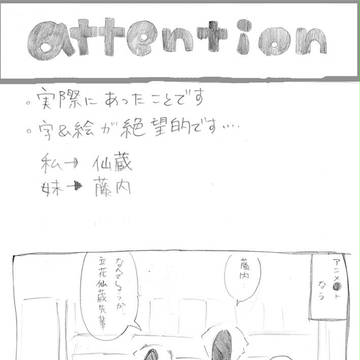 attention
。実際にあったことです
。字&絵が絶望的です….
私→ 仙蔵
妹→ 藤内
アニメ●ト
なう
藤内
なんでしょうか
立花仙蔵先輩